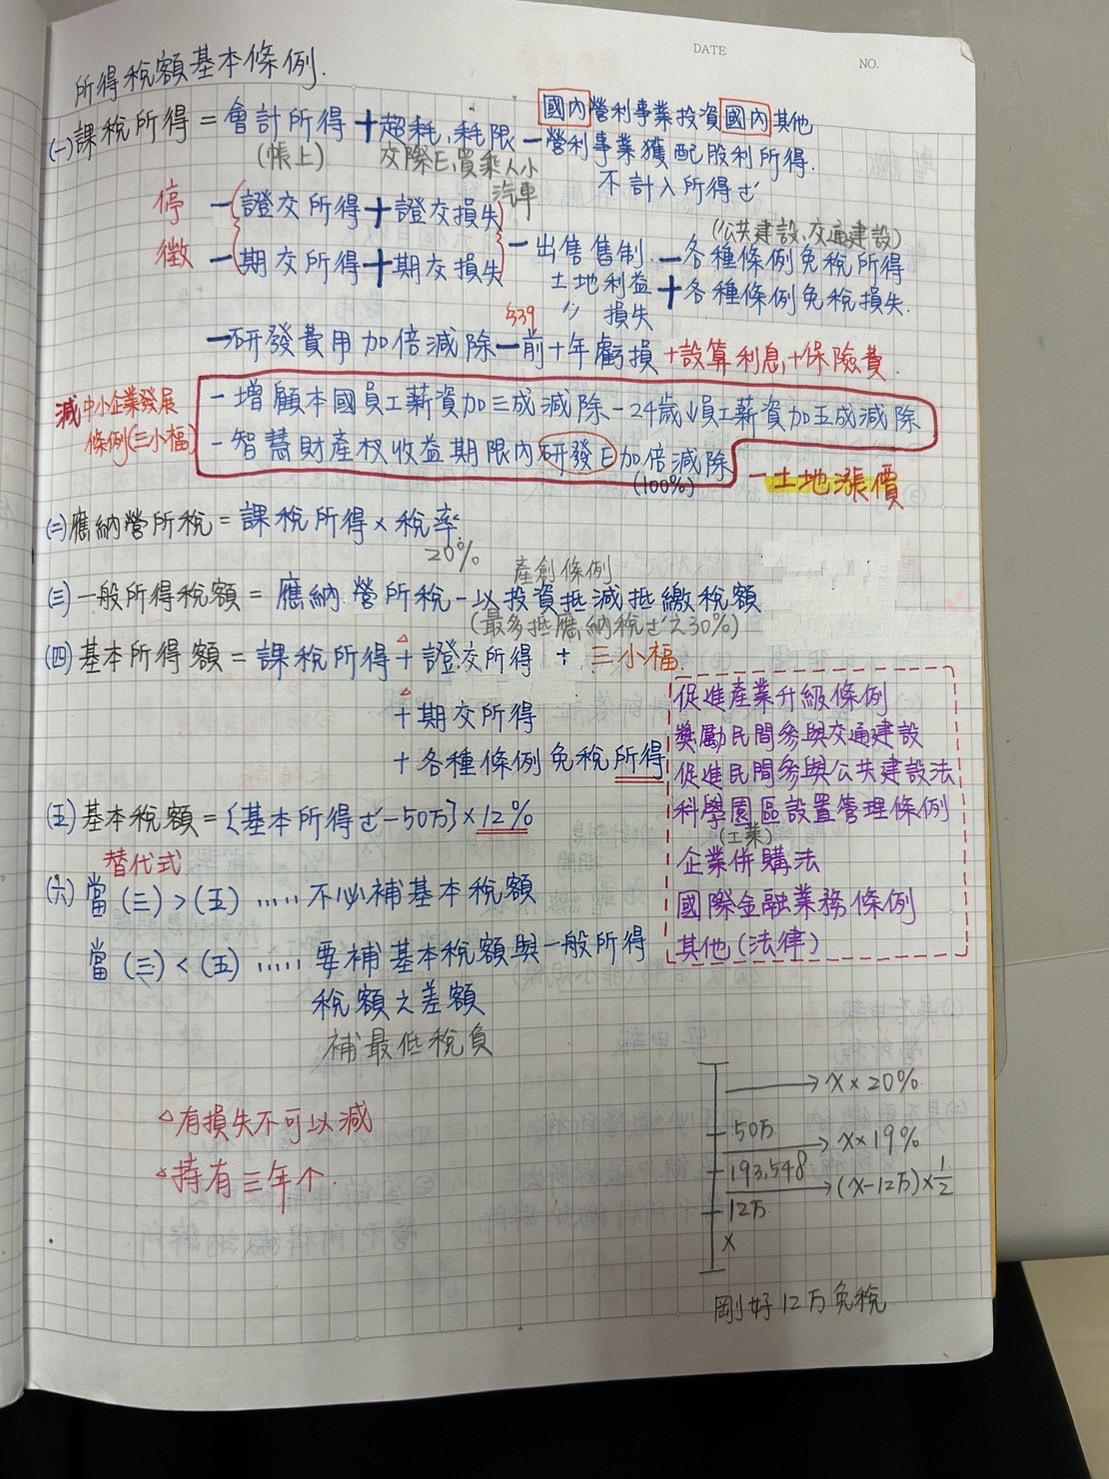 DATE
NO.
所得稅額基本條例.
(一)課稅所得=會計所得+超耗、耗限-國內營利事業投資國內其他
營利事業獲配股利所得.
(帳上) 交際E,買乘人小汽車
不計入所得
停徵
-(證交所得+證交損失)
-(期交所得+期交損失)
-出售售制土地利益
〃 損失
(公共建設、交通建設)
-各種條例免稅所得
+各種條例免稅損失.
-研發費用加倍減除-前十年虧損+設算利息+保險費.
§39
減 中小企業發展
條例(三小福)
-增顧本國員工薪資加三成減除-24歲↓員工薪資加五成減除
-智慧財產权收益期限內研發E加倍減除
(100%)
-土地漲價
(二)應納營所稅=課稅所得×稅率
20%
產創條例
(三)一般所得稅額=應納營所稅-以投資抵減抵繳稅額
(最多抵應納稅額之30%)
(四)基本所得額=課稅所得+證交所得 + 三小福.
△
△
+期交所得
+各種條例免稅所得
促進產業升級條例
獎勵民間參與交通建設
促進民間參與公共建設法
科學園區設置管理條例
(工業)
企業併購法
國際金融業務條例
其他(法律)
(五)基本稅額={基本所得額-50万}×12%
替代式
(六)當(三)>(五).....不必補基本稅額
當(三)<(五).....要補基本稅額與一般所得
稅額之差額
補最低稅負
△有損失不可以減
△持有三年↑.
→X×20%
50万
→X×19%
193,548
→(X-12万)×1/2
12万
X
剛好12万免稅